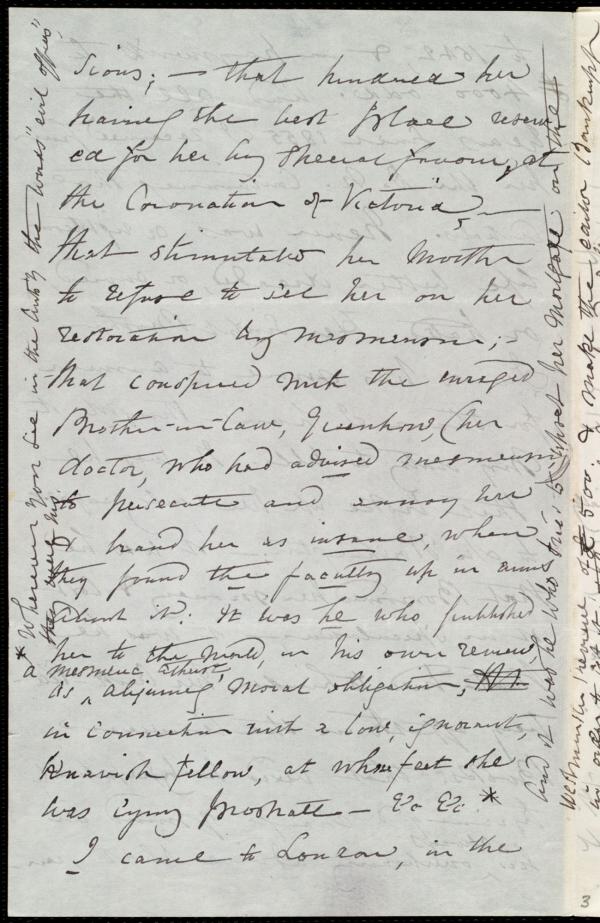 sions; — that hindered her
having the best place reserv
ed for her by special favour, at
the Coronation of Victoria, —
that stimulated her Mother
to refuse to see her on her
restoration by mesmerism; —
that conspired with the enraged
Brother-in-law, Greenhow, (her
doctor, who had advised mesmerism
to persecute and annoy her
& brand her as insane, when
they found the faculty up in arms
about it: It was he who published
her to the world, in his own review,
a mesmeric atheist,
as abjuring moral obligation,
in connection with a low, ignorant,
knavish fellow, at whose feet she
was lying prostrate — &c &c. *
I came to London, in the
* Wherever you see in the Autoby the words "evil offices",
they were his
And it was he who tried to upset her Mortgage on the
Westminster review of £500. & make the Editor Bankrupt
in order to
3